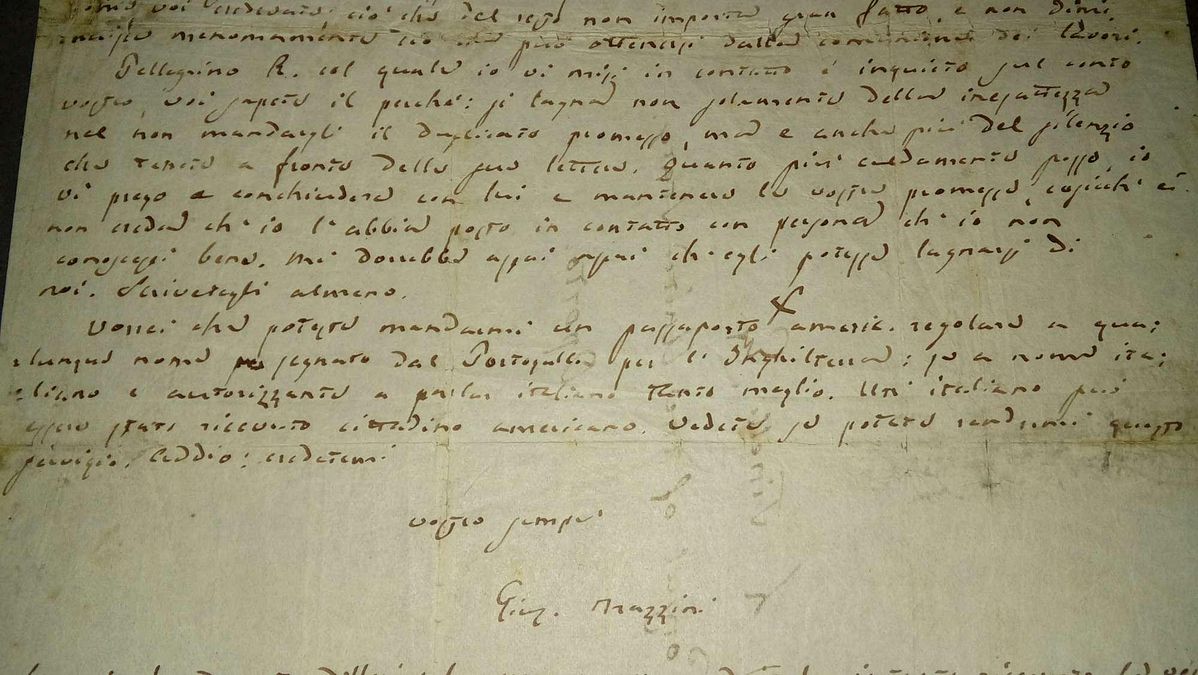 voi crederete; ciò che del resto non importa gran fatto, e non dimi
menomamente ciò che può ottenersi dalla comunione dei lavori.
Pellegrino R. col quale io vi misi in contatto è inquieto sul conto
vostro, voi sapete il perché: si lagna non solamente della inesattezza
nel non mandargli il duplicato promesso, ma e anche più del silenzio
che tenete a fronte delle sue lettere. Quanto più caldamente posso, io
vi prego a conchiudere con lui e mantenere la vostra promessa, cosicch' ei
non creda ch' io l'abbia posto in contatto con persona ch' io non
conoscessi bene. Mi dorrebbe assai assai ch' egli potesse lagnarsi di
noi. Scrivetegli almeno.
Vorrei che poteste mandarmi un passaporto americ. regolare a qua:
:lunque nome segnato dal Portogallo per l' Inghilterra; se a nome ita:
:liano e autorizzante a parlar italiano tanto meglio. Un italiano può
essere stato ricevuto cittadino americano. Vedete se potete rendermi questo
servigio. Addio: credetemi
vostro sempre
Gius. Mazzini